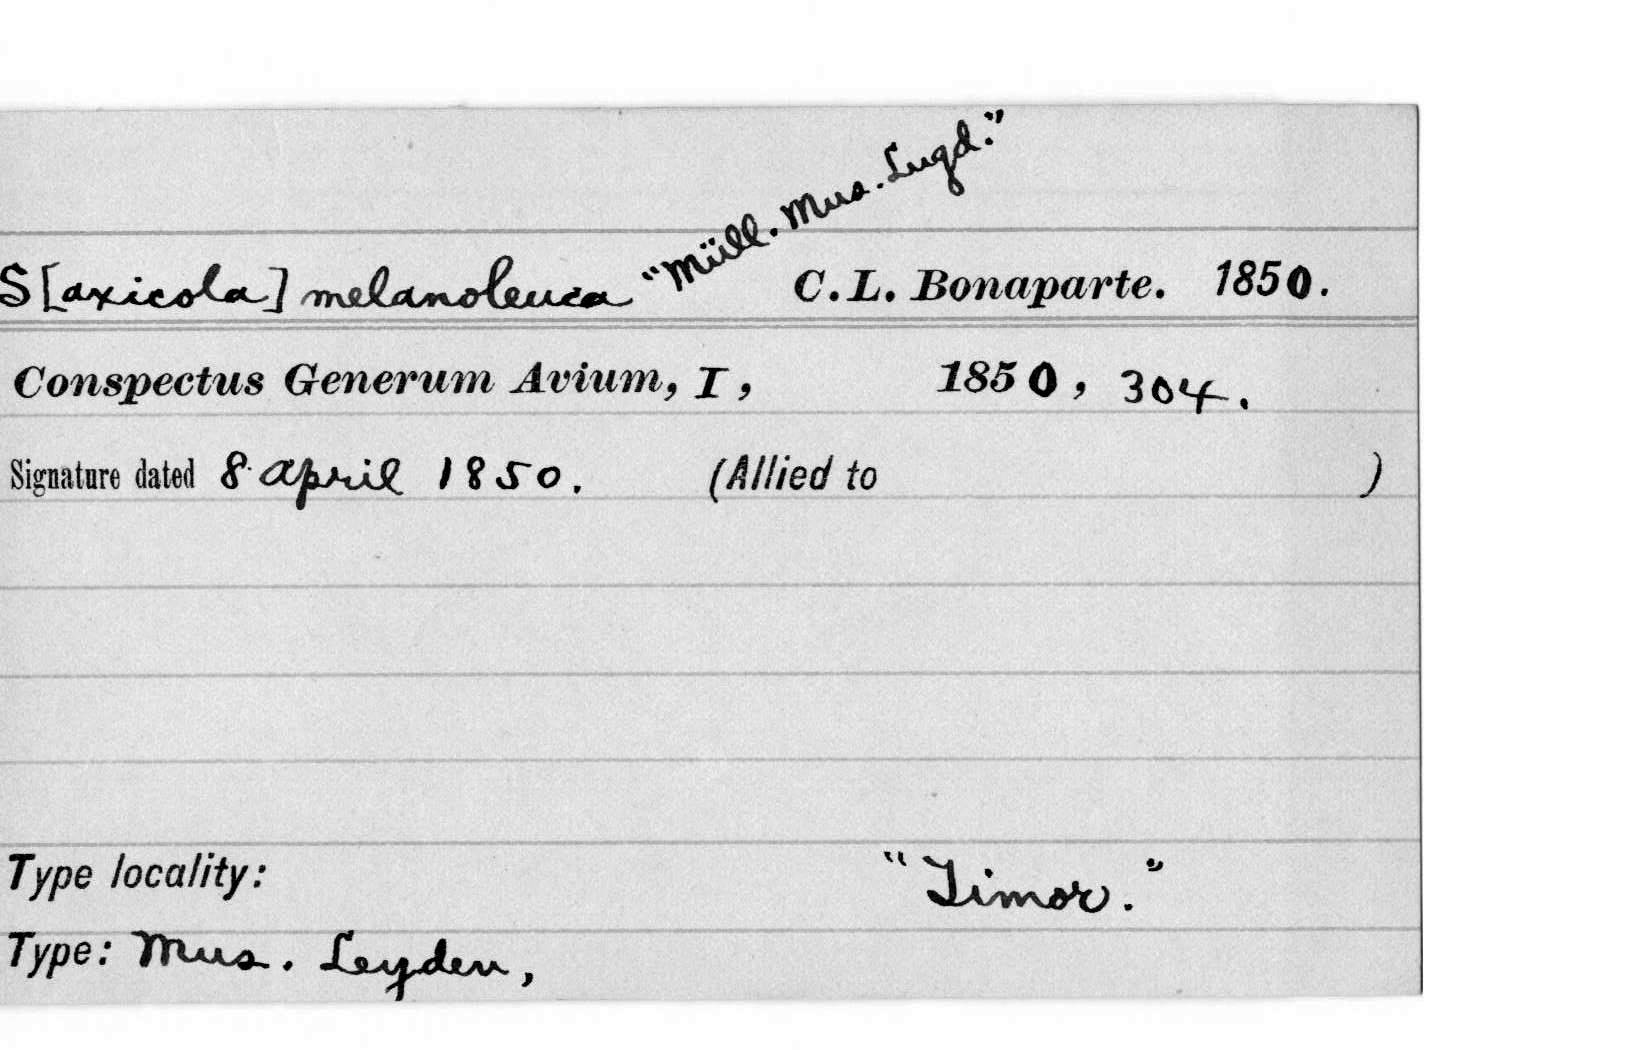 S[axicola] melanoleuca "Müll. Mus. Lugd." C. L. Bonaparte. 1850.
Conspectus Generum Avium, I, 1850, 304.
Signature dated 8 April 1850. (Allied to )
Type locality: "Timor."
Type: Mus. Leyden,